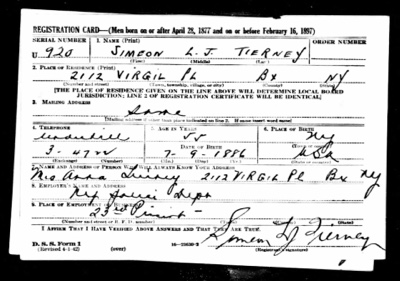 REGISTRATION CARD—(Men born on or after April 28, 1877 and on or before February 16, 1897)
SERIAL NUMBER 1. NAME (Print) ORDER NUMBER
U 920 SIMEON L. J. TIERNEY
(First) (Middle) (Last)
2. PLACE OF RESIDENCE (Print)
2112 VIRGIL PL Bx NY
(Number and street) (Town, township, village, or city) (County) (State)
[THE PLACE OF RESIDENCE GIVEN ON THE LINE ABOVE WILL DETERMINE LOCAL BOARD
JURISDICTION; LINE 2 OF REGISTRATION CERTIFICATE WILL BE IDENTICAL]
3. MAILING ADDRESS
Same
[Mailing address if other than place indicated on line 2. If same insert word same]
4. TELEPHONE 5. AGE IN YEARS 6. PLACE OF BIRTH
55 NY
DATE OF BIRTH
3-47 7-9-1886 USA
(Exchange) (Number) (Mo.) (Day) (Yr.) (State or country)
7. NAME AND ADDRESS OF PERSON WHO WILL ALWAYS KNOW YOUR ADDRESS
Mrs Anna Tierney 2112 VIRGIL Pl Bx NY
8. EMPLOYER'S NAME AND ADDRESS
NY Police Dept
9. PLACE OF EMPLOYMENT OR BUSINESS
23rd Precinct
(Number and street or R. F. D. number) (Town) (County) (State)
I AFFIRM THAT I HAVE VERIFIED ABOVE ANSWERS AND THAT THEY ARE TRUE.
Simeon L J Tierney
D. S. S. Form 1
(Revised 4-1-42) (over) (Registrant's signature)